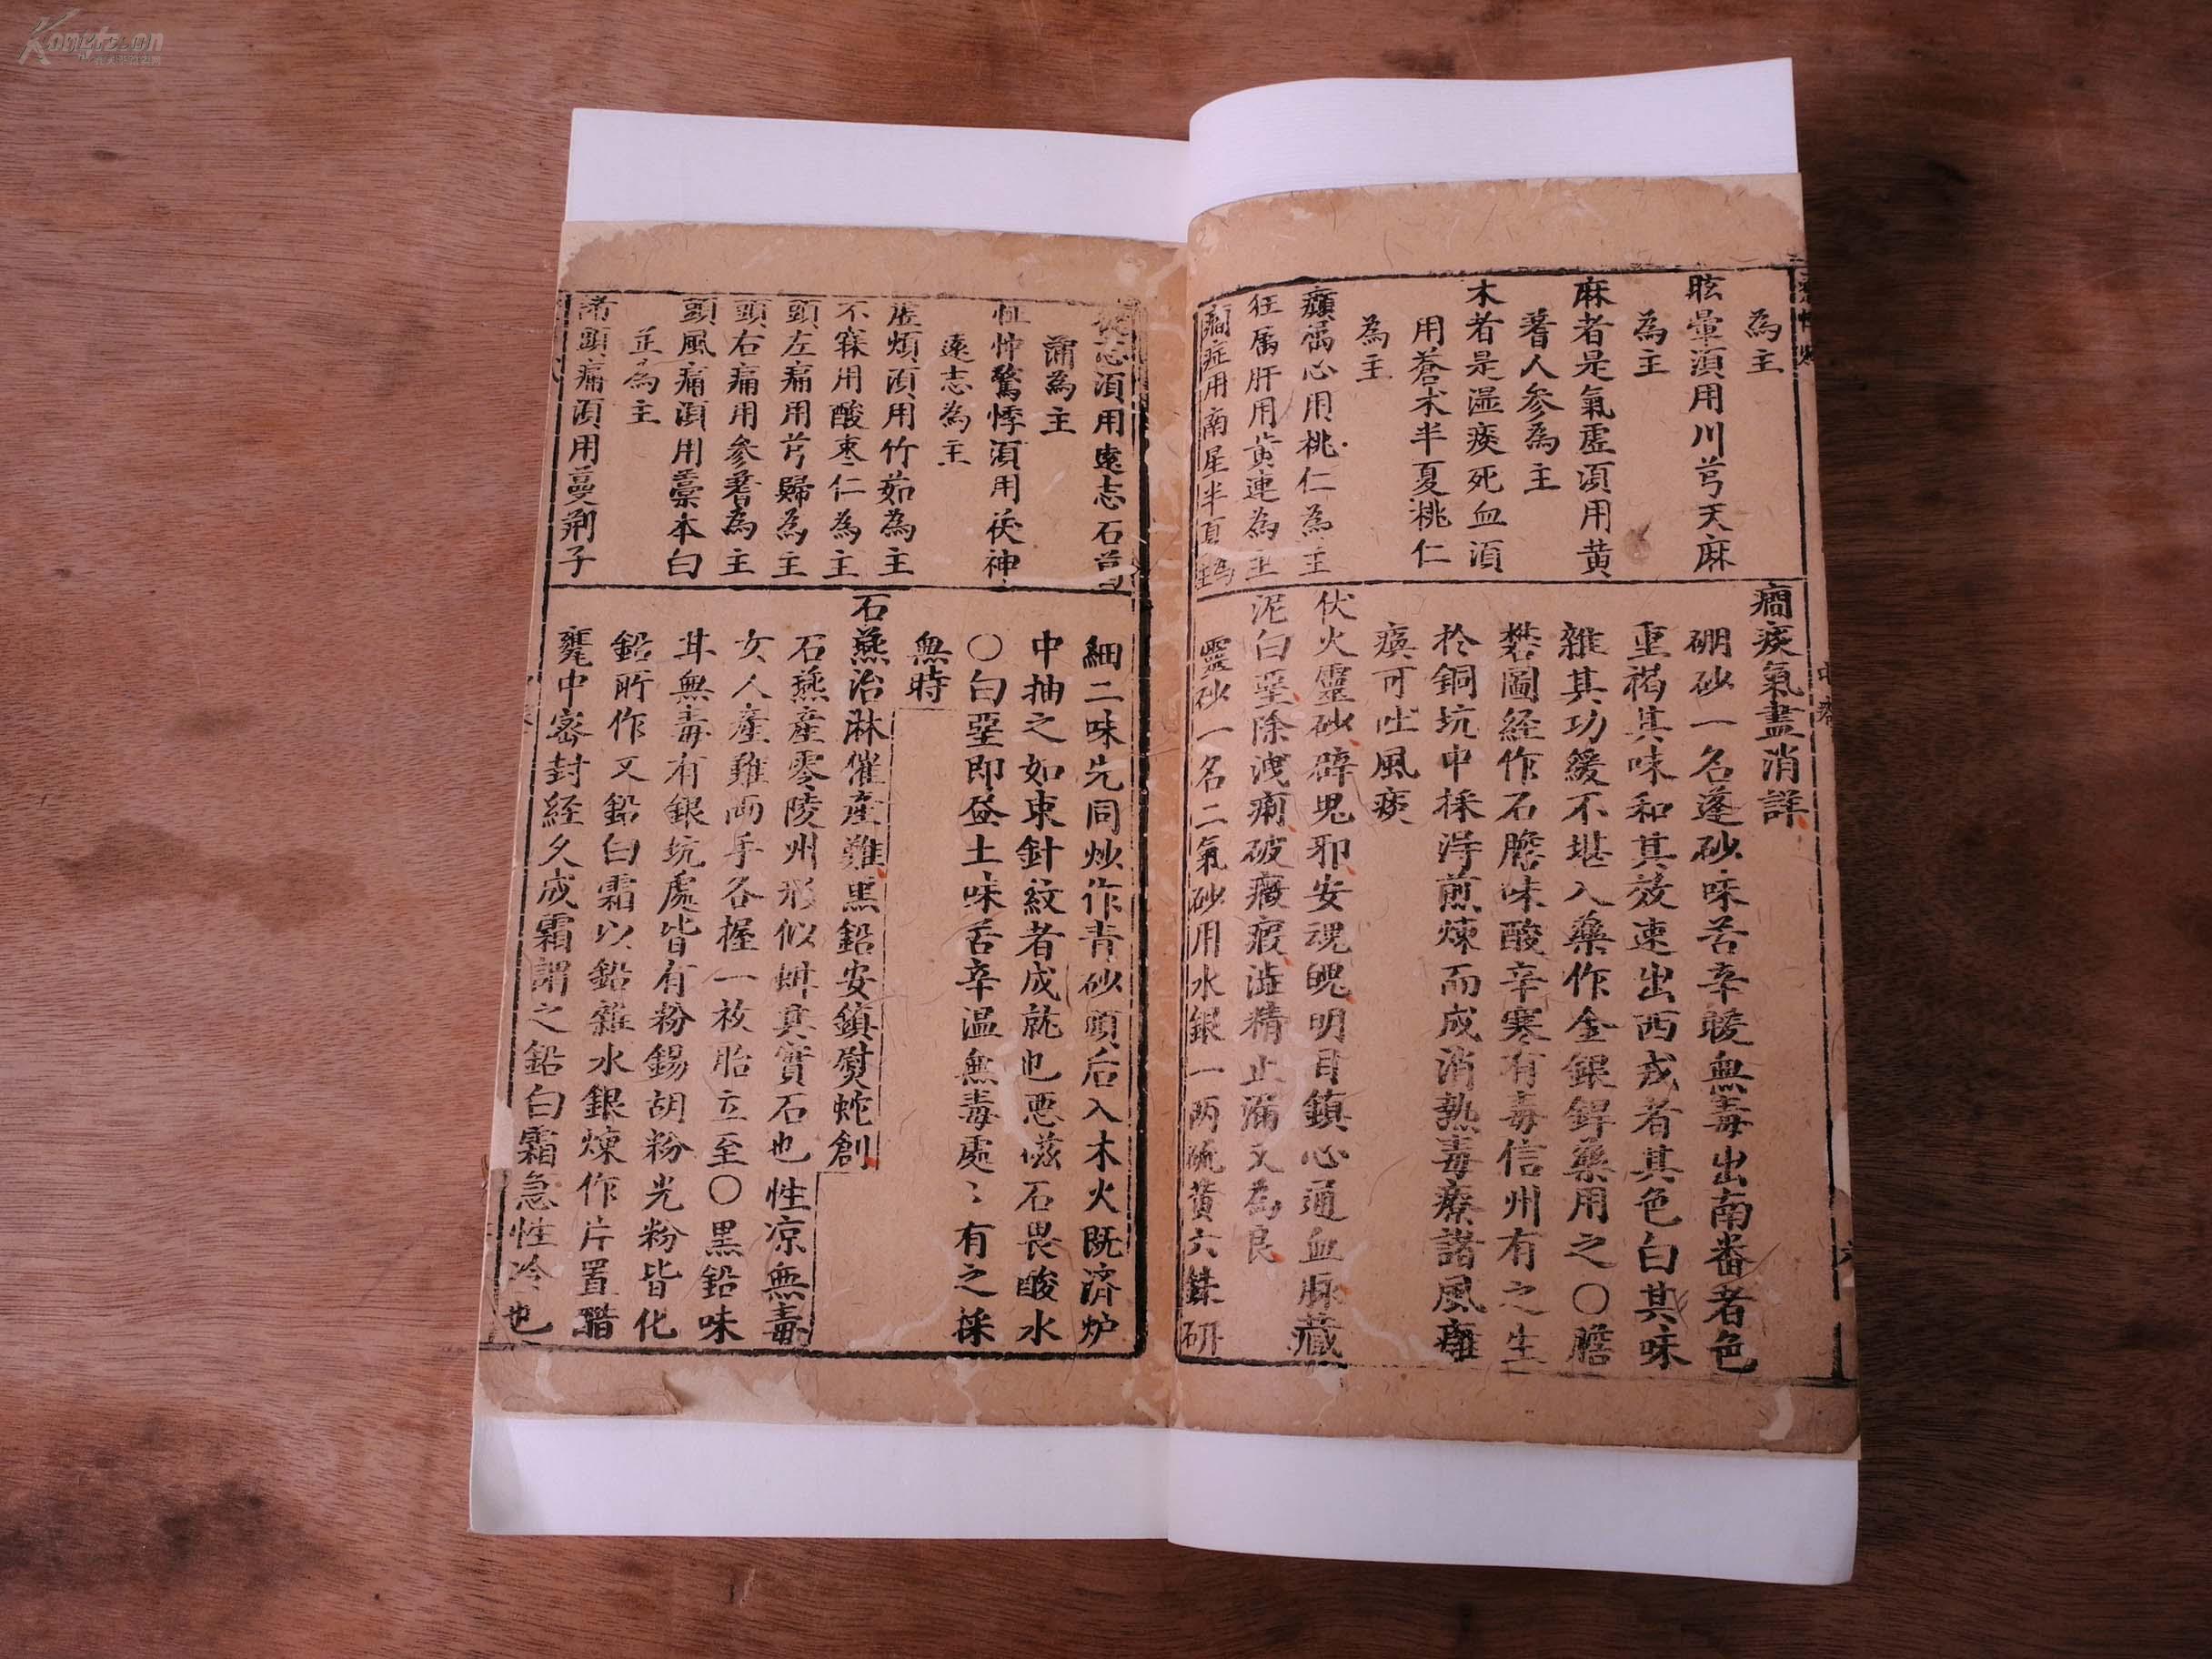 為主
眩暈湏用川芎天麻
為主
麻者是氣虛湏用黄
蓍人參為主
木者是濕痰死血湏
用蒼术半夏桃仁
為主
癲屬心用桃仁為主
狂屬肝用黄連為主
癎症用南星半夏為主
癎痰氣盡消詳
硼砂一名蓬砂味苦辛暖無毒出南番者色
重褐其味和其效速出西戎者其色白其味
雜其功緩不堪入藥作金銀銲藥用之〇膽
礬圖經作石膽味酸辛寒有毒信州有之生
於銅坑中採淂煎煉而成消熟毒療諸風癱
瘓可吐風痰
伏火靈砂辟鬼邪安魂魄明目鎮心通血脉藏
泥白堊除洩痢破癥瘕澁精止漏文為良
靈砂一名二氣砂用水銀一两硫黄六銖研
忘湏用遠志石菖
蒲為主
怔忡驚悸湏用茯神
遠志為主
虛煩湏用竹茹為主
不寐用酸枣仁為主
頭左痛用芎歸為主
頭右痛用參蓍為主
頭風痛湏用藁本白
芷為主
諸頭痛湏用蔓荊子
細二味先同炒作青砂頭后入木火既済炉
中抽之如束針紋者成就也悪磁石畏酸水
〇白堊即𤇾土味苦辛温無毒處〻有之採
無時
石燕治淋催産難黒鉛安鎮熨蛇創
石燕産零陵州形似蚶其實石也性凉無毒
女人産難两手各握一枚胎立至〇黒鉛味
甘無毒有銀坑處皆有粉錫胡粉光粉皆化
鉛所作又鉛白霜以鉛雜水銀煉作片置醋
甕中密封経久成霜謂之鉛白霜急性冷也